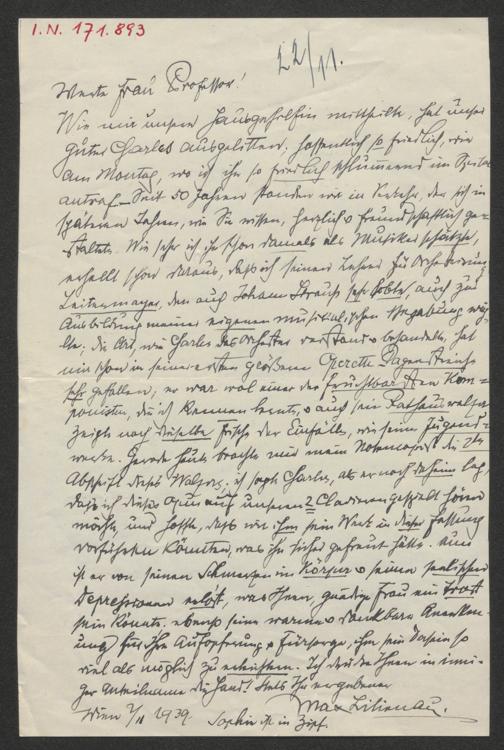 I.N. 171.893
22/11.
Werte Frau Professor!
Wie mir unsere Hausgehilfin mitteilte, hat unser
guter Charles ausgelitten; hoffentlich so friedlich, wie
am Montag, wo ich ihn so friedlich schlummernd im Spital
antraf. Seit 50 Jahren standen wir in Verkehr, der sich in
späteren Jahren, wie Sie wissen, herzlich freundschaftlich ge-
staltete. Wie sehr ich ihn schon damals als Musiker schätzte,
erhellt schon daraus, daß ich seinen Lehrer für Orchestrierung
den auch Johann Strauss sehr lobte, auch zur
Ausbildung meiner eigenen musikalischen Begabung wäh-
lte; die Art, wie Charles das Orchester verstand u behandelte, hat
mir schon in seiner ersten größeren Operette Pagenstreiche
sehr gefallen, er war wol einer der fruchtbarsten Kom-
ponisten, die ich kennen lernte, u auch sein Rathauswalzer
zeigte noch dieselbe Frische der Einfälle, wie seine Jugend-
werke. Gerade heute brachte mir mein Notencopist die
Abschrift dieses Walzers; ich sagte Charles, als er noch daheim lag,
daß ich dieses Opus auf unseren 2 Clavieren gespielt hören
möchte, und hoffte, daß wir ihm sein Werk in dieser Fassung
vorführen könnten, was ihn sicher gefreut hätte. Nun
ist er von seinen Schmerzen im Körper u seinen seelischen
Depressionen erlöst, was Ihnen, gnädige Frau ein Trost
sein könnte, ebenso seine warme u dankbare Anerken-
nung für Ihre Aufopferung u Fürsorge, ihm sein Dasein so
viel als möglich zu erleichtern. Ich drücke Ihnen in inni-
ger Anteilnahme die Hand! Stets Ihr ergebener
Max Lilienau.
Wien 1939. Sophie ist in